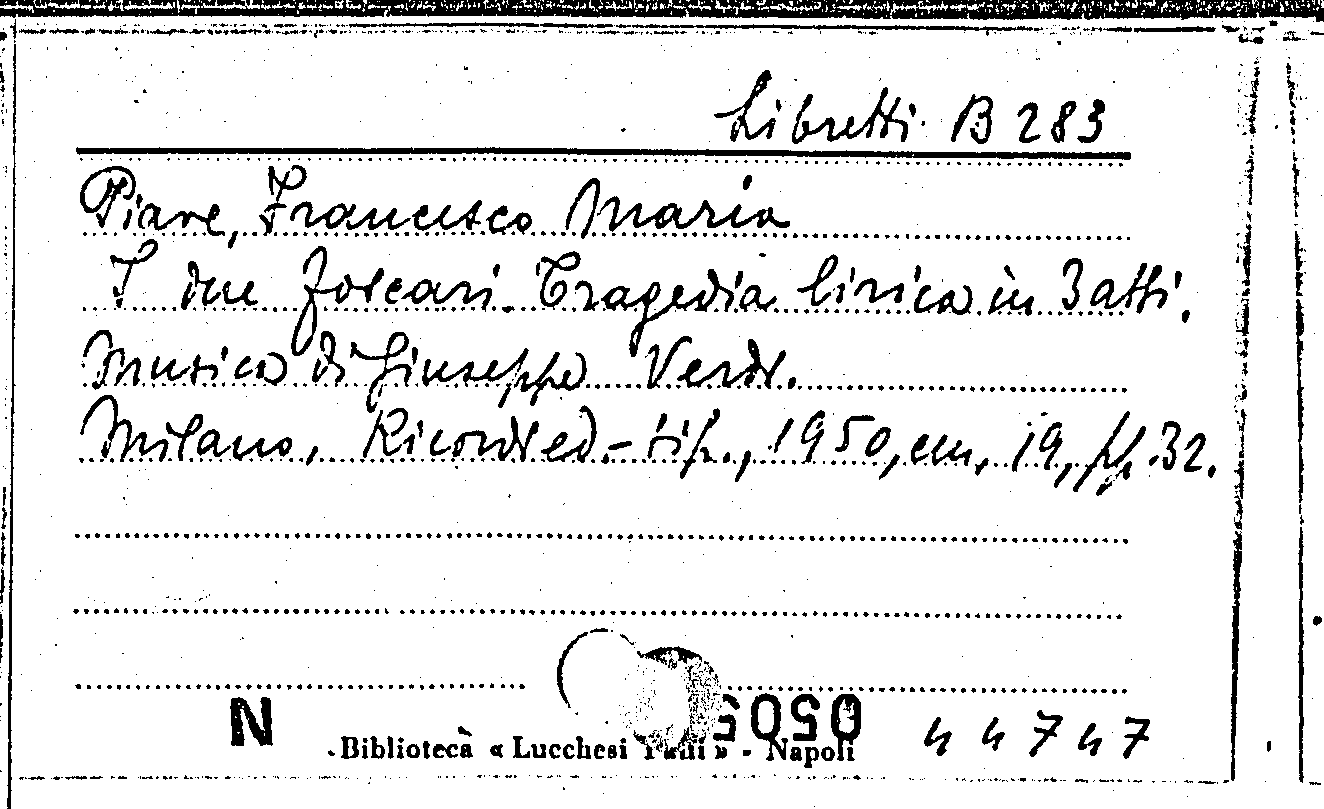 Libretti B 283
Piave, Francesco Maria
I due Foscari. Tragedia lirica in 3 atti.
Musica di Giuseppe Verdi.
Milano, Ricordi ed.-tip., 1950, cm. 19, pp. 32.
N
Biblioteca « Lucchesi Palli » - Napoli
44747